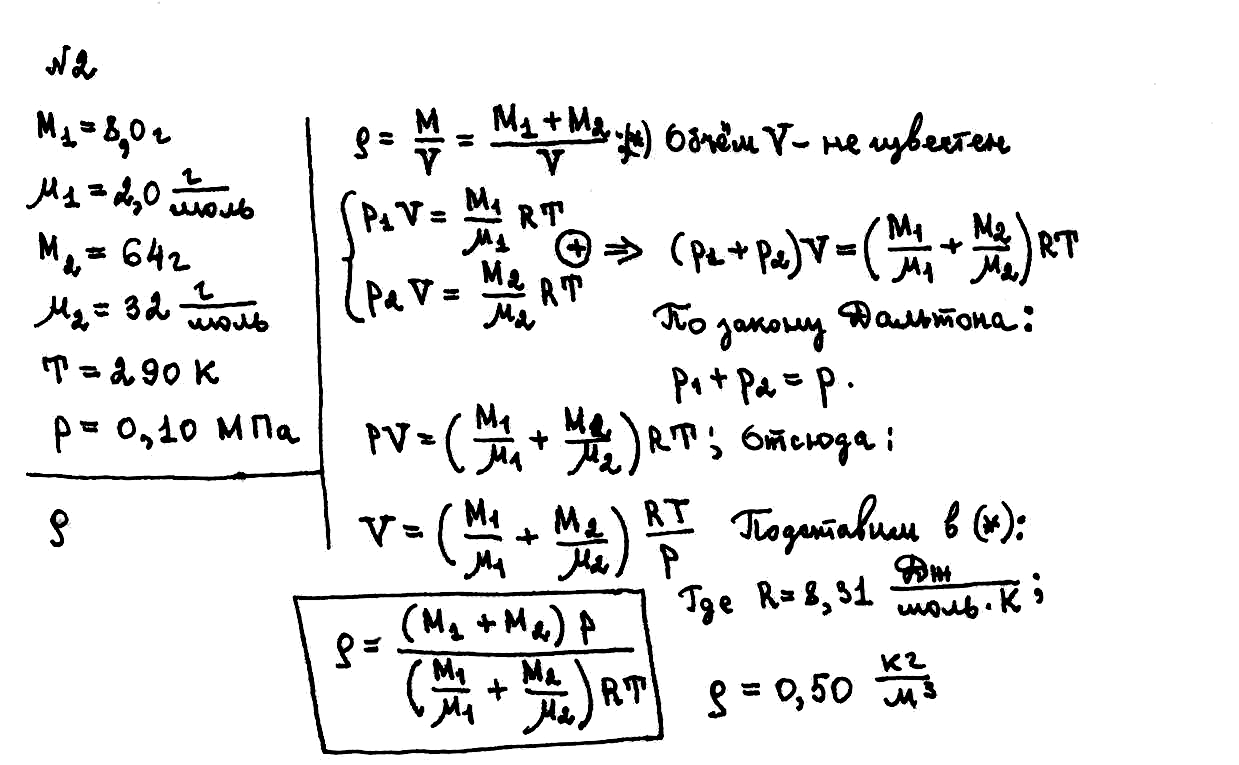 №2
M₁ = 8,0 г
μ₁ = 2,0 г/моль
M₂ = 64 г
μ₂ = 32 г/моль
T = 290 К
p = 0,10 МПа
ρ
ρ = M/V = (M₁ + M₂)/V (*) Объём V - не известен
{ p₁V = M₁/μ₁ RT
p₂V = M₂/μ₂ RT
⊕ ⇒ (p₁ + p₂)V = (M₁/μ₁ + M₂/μ₂) RT
По закону Дальтона:
p₁ + p₂ = p.
pV = (M₁/μ₁ + M₂/μ₂) RT; Отсюда:
V = (M₁/μ₁ + M₂/μ₂) RT/p Подставим в (*):
Где R = 8,31 Дж/моль·К;
ρ = (M₁ + M₂) p / (M₁/μ₁ + M₂/μ₂) RT
ρ = 0,50 кг/м³